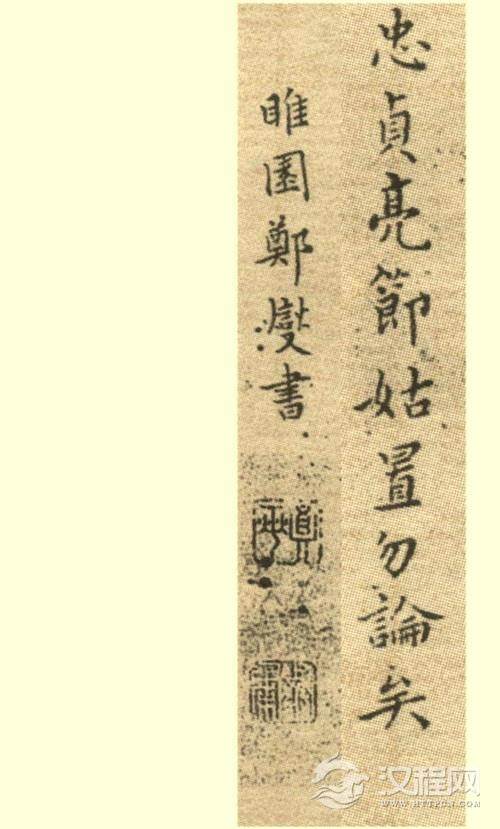 忠貞亮節姑置勿論矣
睢園鄭燮書
汉程网
WWW.HTTPCN.COM